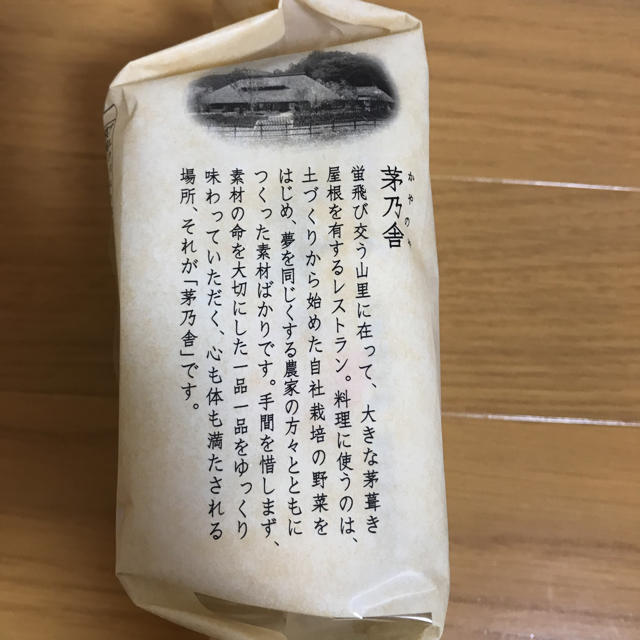 茅乃舎
かやのや
蛍飛び交う山里に在って、大きな茅葺き
屋根を有するレストラン。料理に使うのは、
土づくりから始めた自社栽培の野菜を
はじめ、夢を同じくする農家の方々とともに
つくった素材ばかりです。手間を惜しまず、
素材の命を大切にした一品一品をゆっくり
味わっていただく、心も体も満たされる
場所、それが「茅乃舎」です。